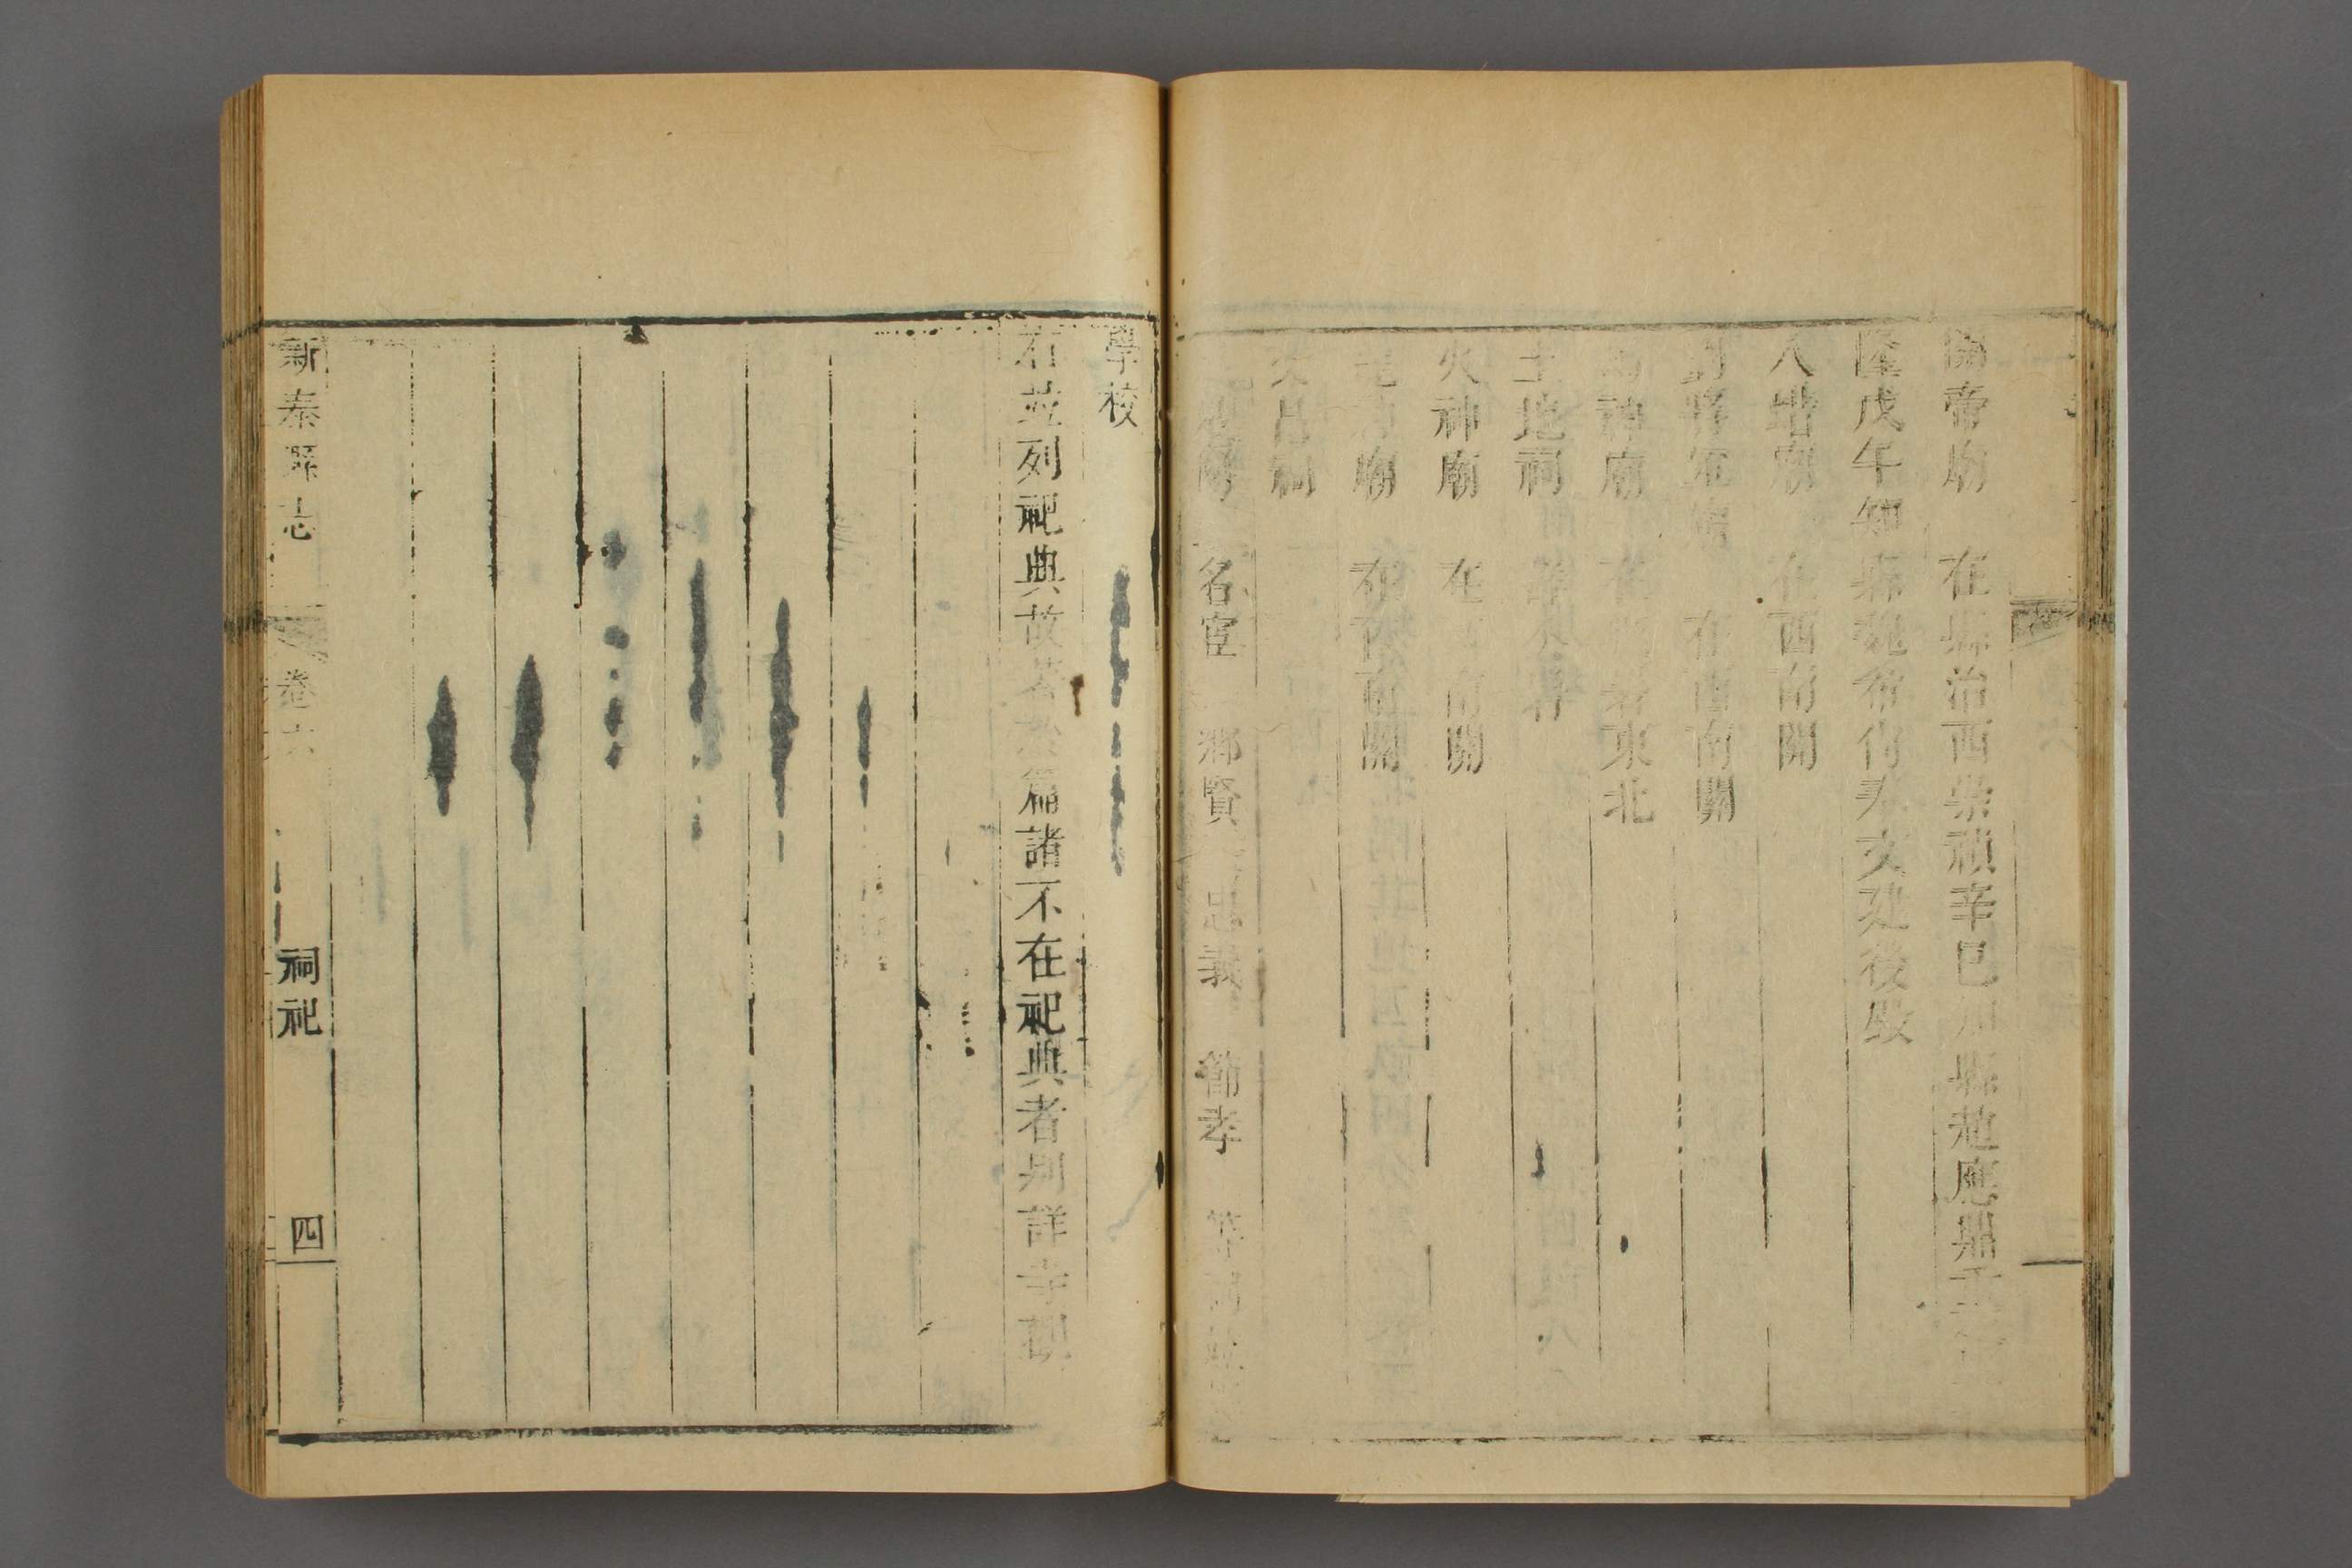 關帝廟 在縣治西崇禎辛巳知縣趙應鼎重
隆戊午知縣魏希尚奉文建後毀
八蜡廟 在西南關
劉將軍廟 在西南關
神廟 在 東北
土地祠
火神廟 在 南關
廟 在西南關
文昌祠
名宦 鄉賢 忠義 節孝 等祠
學校
右並列祀典故著於篇諸不在祀典者別詳寺觀
新泰縣志 卷六 祠祀 四